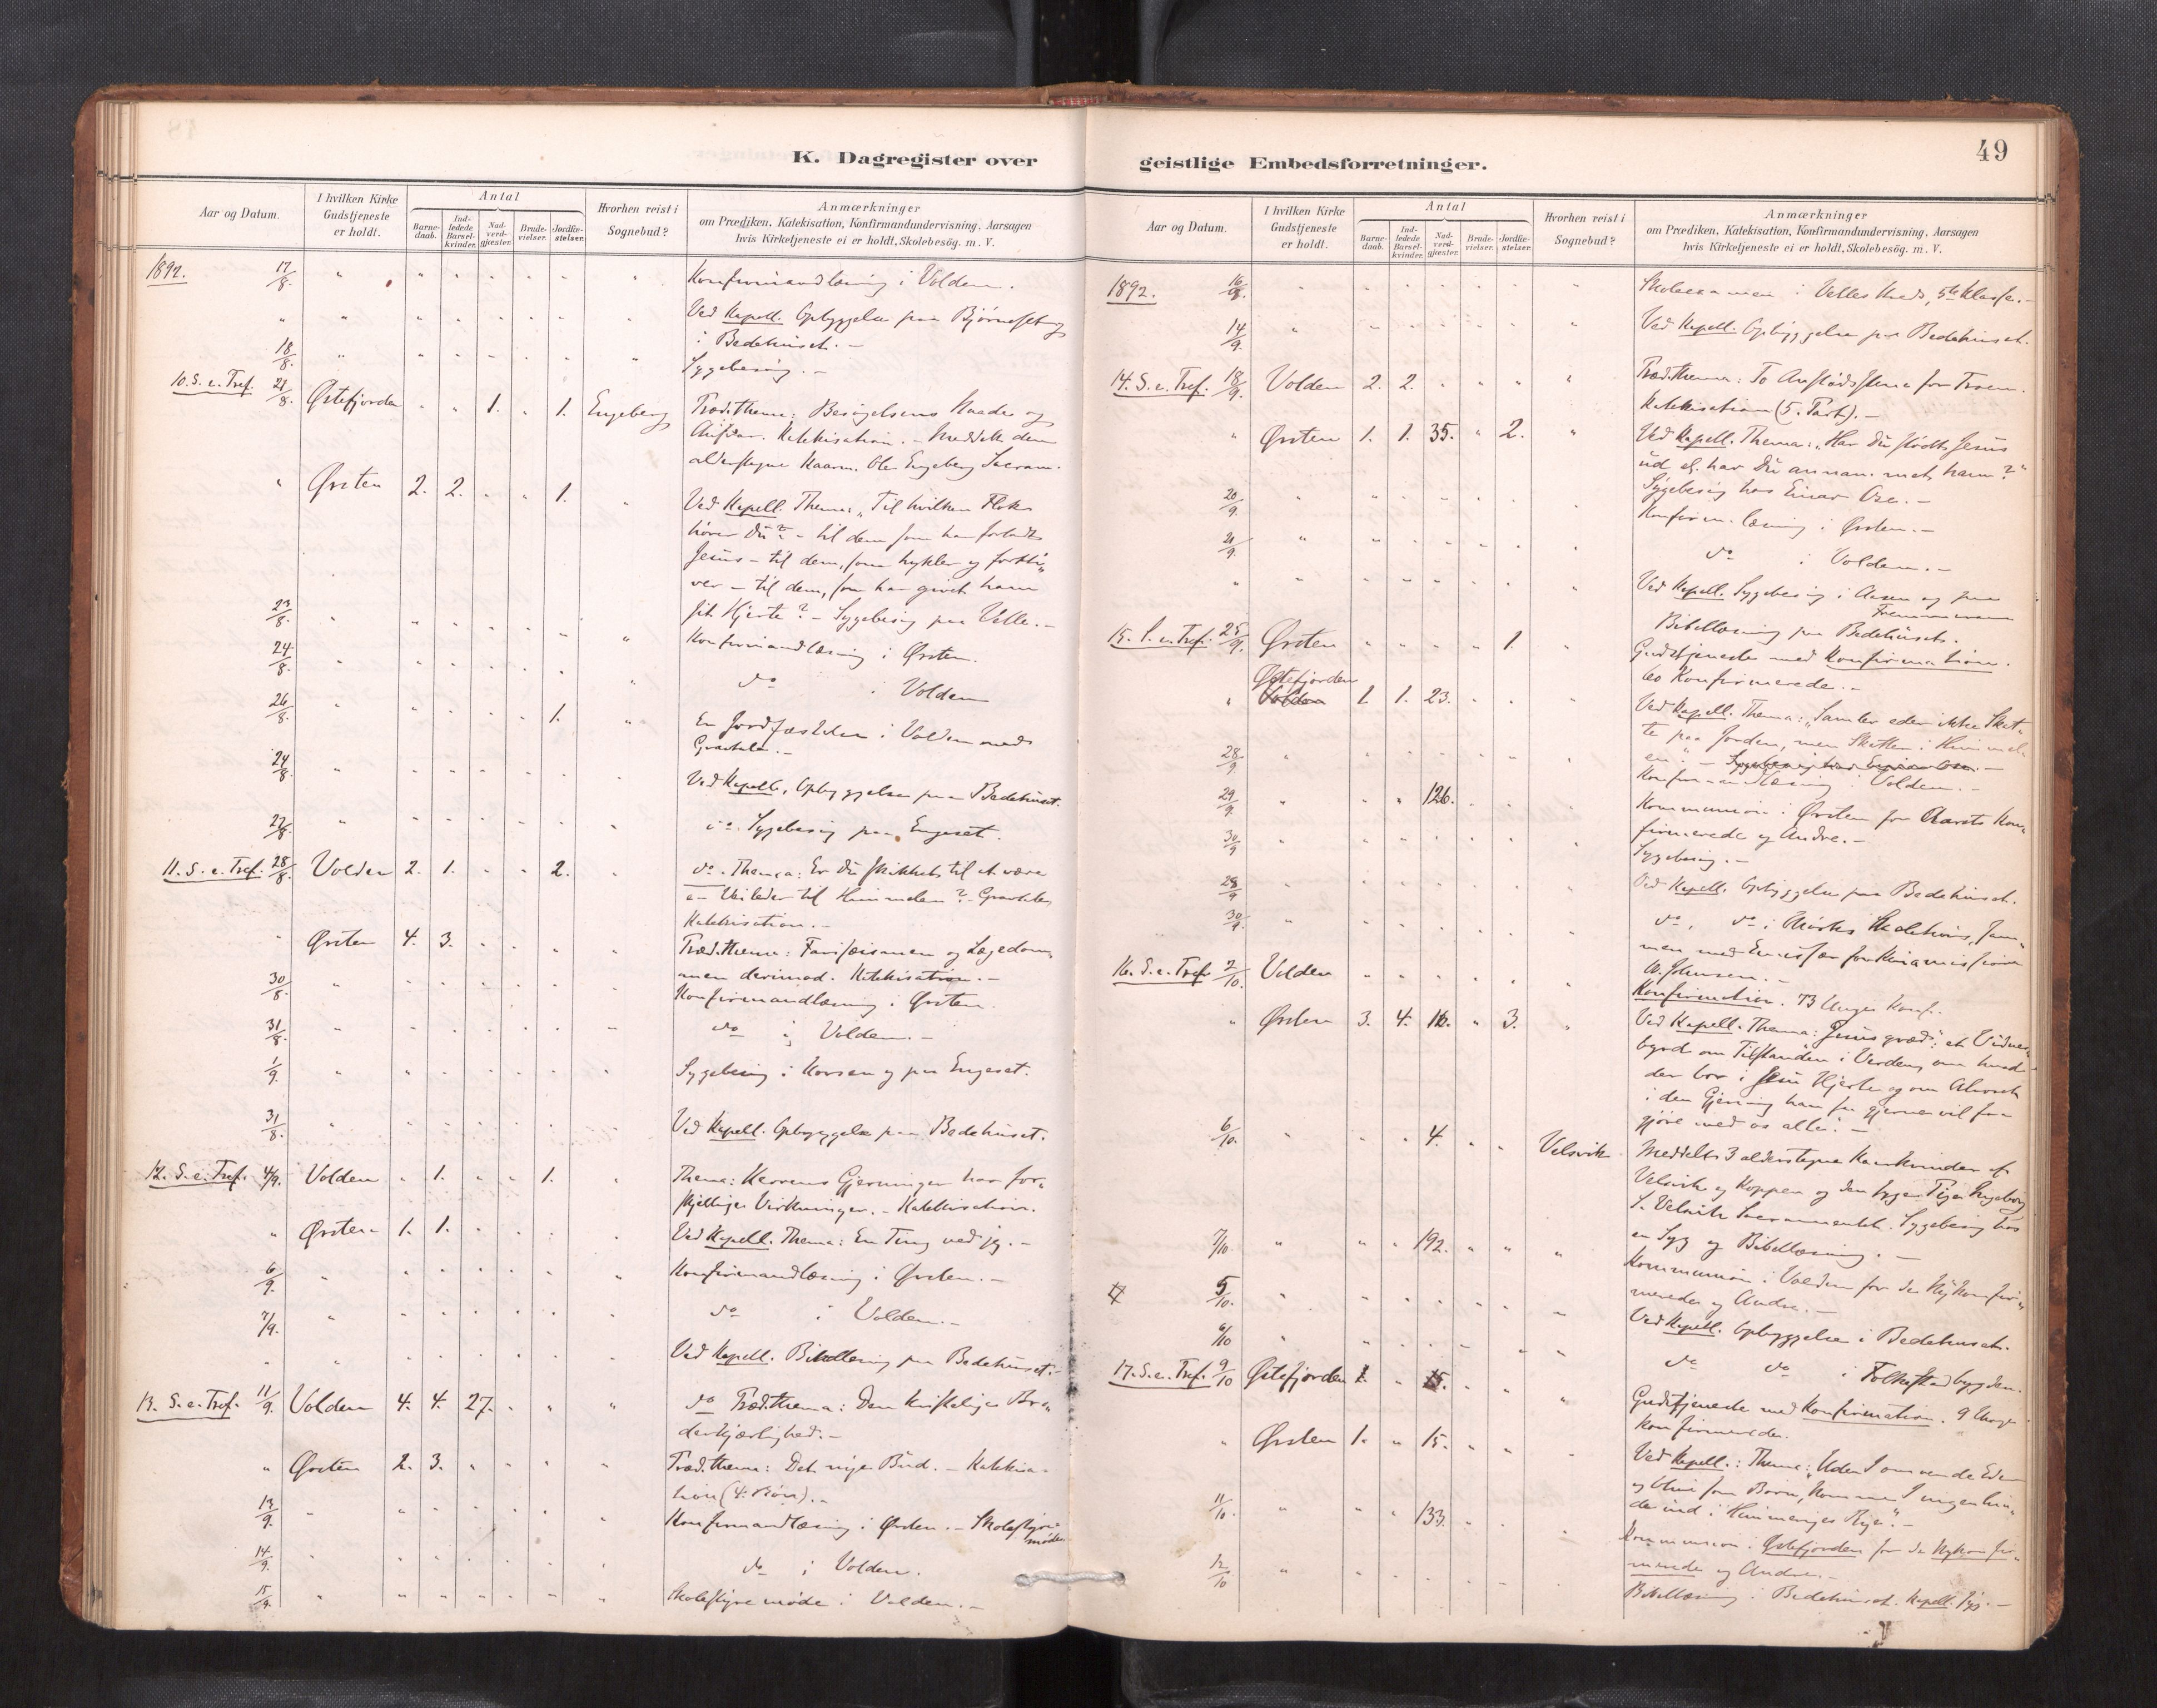 49
K. Dagregister over geistlige Embedsforretninger.
Aar og Datum. I hvilken Kirke Gudstjeneste er holdt. Antal Barnedaab. Indledede Barselkvinder. Nadverdgjester. Brudevielser. Jordfæstelser. Hvorhen reist i Sognebud? Anmærkninger om Prædiken, Katekisation, Konfirmandundervisning, Aarsagen hvis Kirketjeneste ei er holdt, Skolebesög. m. V.
1892. 17/8. Konfirmandlæsning i Volden.
Ved Kapell. Opbyggelse paa
i Bedehuset. -
18/8. Sygebesøg. -
10. S. e. Tref. 21/8. Østefjorden 1. 1. Engeberg Præd.thema: Besøgelsens Naade og
Ansvar. Katekisation. - Meddelte den
alderstegne Kaarm. Ole Engeberg Sacram.
Ørsten 2. 2. 1. Ved Kapell. Thema: "Til hvilken Flok
hører Du?" - til dem som har forladt
Jesus - til dem, som hykler og
til dem, som har givet ham
sit Hjerte? - Sygebesøg paa Velle. -
23/8. Konfirmandlæsning i Ørsten.
24/8. do i Volden
26/8. 1. En Jordfæstelse i Volden med
Gravtale. -
24/8. Ved Kapell. Opbyggelse paa Bedehuset.
27/8. do. Sygebesøg paa Engeset.
11. S. e. Tref. 28/8. Volden 2. 1. 2. do. Thema: Er Du skikket til at være
en Veileder til Himmelen? - Gravtale,
Katekisation. -
Ørsten 4. 3. Præd.thema: Farisæismen og Lægedom,
men derimod. Katekisation. -
30/8. Konfirmandlæsning i Ørsten.
31/8. do i Volden. -
1/9. Sygebesøg i og paa Engeset.
31/8. Ved Kapell. Opbyggelse paa Bedehuset.
12. S. e. Tref. 4/9. Volden 1. 1. Thema: Herrens Gjerninger har for,
skjellige Virkninger. - Katekisation.
Ørsten 1. 1. Ved Kapell. Thema: En Ting ved jeg. -
6/9. Konfirmandlæsning i Ørsten. -
7/9. do i Volden. -
Ved Kapell. Bibellæsning paa Bedehuset. -
13. S. e. Tref. 11/9. Volden 4. 4. 27. do Præd.thema: Den kristelige Bro,
derkjærlighed. -
Ørsten 2. 3. Præd.thema: Det nye Bud. - Katekisa-
tion (4: Bøn). -
13/9. Konfirmandlæsning i Ørsten. - Skolestyre-
møde.
14/9. do i Volden.
15/9. Skolestyremøde i Volden. -
Aar og Datum. I hvilken Kirke Gudstjeneste er holdt. Antal Barnedaab. Indledede Barselkvinder. Nadverdgjester. Brudevielser. Jordfæstelser. Hvorhen reist i Sognebud? Anmærkninger om Prædiken, Katekisation, Konfirmandundervisning, Aarsagen hvis Kirketjeneste ei er holdt, Skolebesög. m. V.
1892. 16/9. Skoleexamen i Velles Kreds, 5te Klasse. -
14/9. Ved Kapell. Opbyggelse paa Bedehuset.
14. S. e. Tref. 18/9. Volden 2. 2. Præd.thema: To Anstødsstene for Troen.
Katekisation (5. Part). -
Ørsten 1. 1. 35. 2. Ved Kapell. Thema: "Har Du stødt Jesus
ud el. har Du annammet ham?"
20/9. Sygebesøg hos Einar Ose. -
Konfirm. læsning i Ørsten. -
21/9. do i Volden. -
Ved Kapell. Sygebesøg i Aasen og paa
Bibellæsning paa Bedehuset.
15. S. e. Tref. 25/9. Ørsten 1. Gudstjeneste med Konfirmation.
60 Konfirmerede. -
Østefjorden
Volden 1. 1. 23. Ved Kapell. Thema: "Samler eder ikke Skat,
te paa Jorden, men Skatter i Himmel,
en". -
28/9. Konfirmandlæsning i Volden. -
29/9. 126. Kommunion i Ørsten for Aarets Kon,
firmerede og Andre. -
30/9 Sygebesøg. -
28/9 Ved Kapell. Opbyggelse paa Bedehuset.
30/9. do, do i Skolehus, sam,
men med for Kinamission
Johnsen.
16. S. e. Tref. 2/10. Volden Konfirmation. 73 Unge Konf.
Ørsten 3. 4. 16. 3. Ved Kapell. Thema: "Jesus græd": et Vidnes,
byrd om Tilstanden i Verden, om hvad
der bor i Jesu Hjerte og om Alvoret
i den Gjerning han saa gjerne vil faa
gjøre med os alle. -
6/10. 4. Velsvik Meddelte 3 alderstegne Kaarkvinder af
Velsvik og Koppen og den syge Pige Ingeborg
S. Velsvik Sacramentet. Sygebesøg hos
en Syg og Bibellæsning. -
7/10. 192. Kommunion i Volden for de Nykonfir,
merede og Andre. -
5/10. Ved Kapell. Opbyggelse i Bedehuset.
6/10 do do i Folkestadbygden.
17. S. e. Tref. 9/10 Østefjorden 1. 15. Gudstjeneste med Konfirmation. 9 Unge
konfirmerede.
Ørsten 1. 15. Ved Kapell.: Thema: "Uden I omvende Eder
og blive som Børn, komme I ingenlun,
de ind i Himmeriges Rige". -
11/10. 133. Kommunion i Østefjorden for de Nykonfir,
merede og Andre. -
12/10 Bibellæsning i Bedehuset. Kapell. syg. -